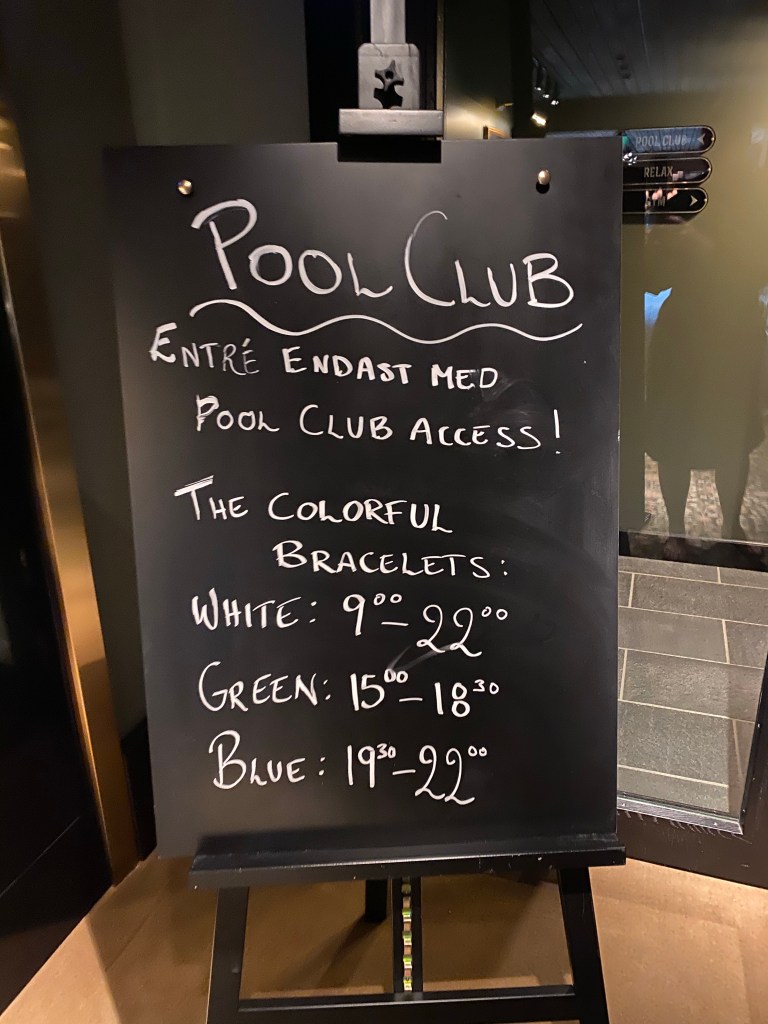 POOL CLUB
ENTRÉ ENDAST MED
POOL CLUB ACCESS!
THE COLORFUL
BRACELETS:
WHITE: 9⁰⁰–22⁰⁰
GREEN: 15⁰⁰–18³⁰
BLUE: 19³⁰–22⁰⁰
POOL CLUB
RELAX